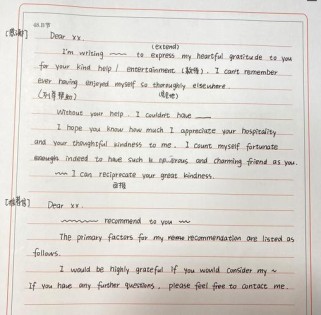 [感谢]
Dear xx.
(extend)
I'm writing ~~~ to express my heartful gratitude to you
for your kind help / entertainment (款待). I can't remember
ever having enjoyed myself so thoroughly elsewhere.
(列举帮助)
Without your help, I couldn't have ___
I hope you know how much I appreciate your hospitality
and your thoughtful kindness to me. I count myself fortunate
enough indeed to have such a generous and charming friend as you.
~~~ I can reciprocate your great kindness.
Dear xx.
~~~ recommend to you ~~~
The primary factors for my recommendation are listed as
follows.
I would be highly grateful if you would consider my ~
If you have any further questions, please feel free to contact me.